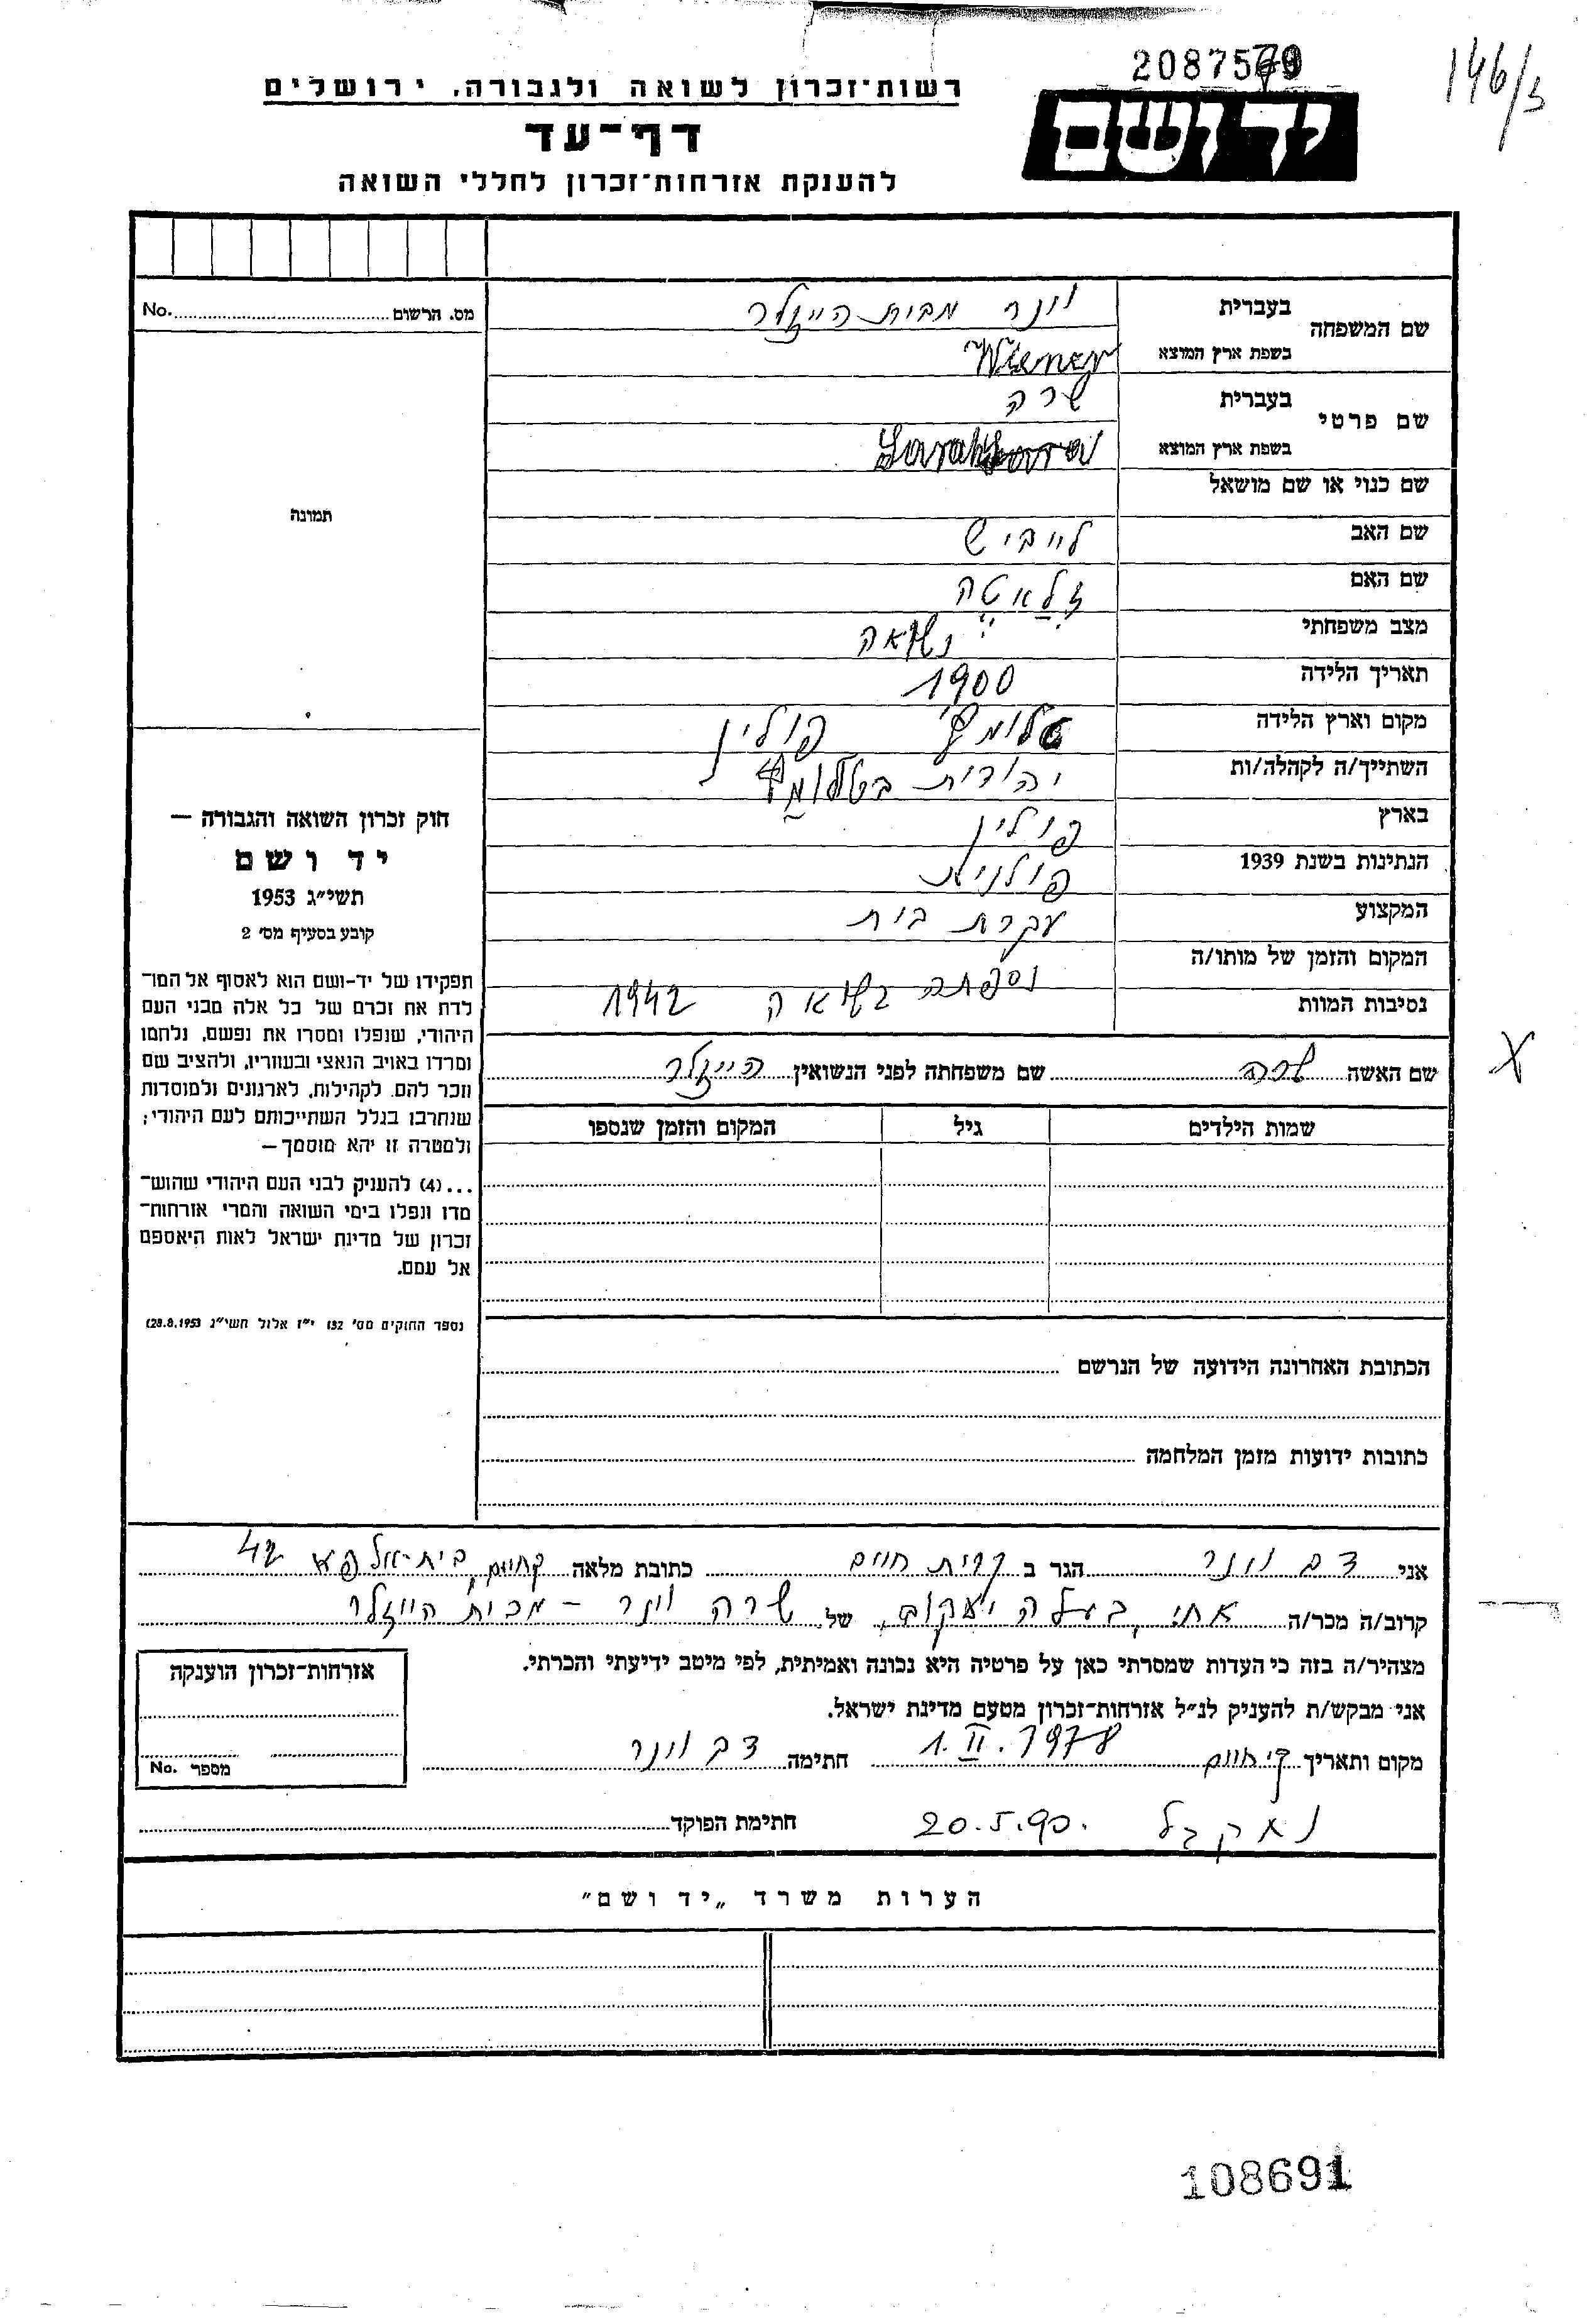 146/3
רשות־זכרון לשואה ולגבורה, ירושלים
דף־עד
להענקת אזרחות־זכרון לחללי השואה
יד ושם
שם המשפחה
בעברית
ונר מבית הייזלר
בשפת ארץ המוצא
Wiener
שם פרטי
בעברית
שרה
בשפת ארץ המוצא
Sarah
שם כנוי או שם מושאל
שם האב
לייביש
שם האם
זלאטה
מצב משפחתי
נשואה
תאריך הלידה
1900
מקום וארץ הלידה
טלומץ פולין
השתייך/ה לקהלה/ות
יהודית בטלומץ
בארץ
פולין
הנתינות בשנת 1939
פולנית
המקצוע
עקרת בית
המקום והזמן של מותו/ה
נסיבות המוות
נספתה בשואה 1942
מס. הרשום No.
תמונה
חוק זכרון השואה והגבורה —
יד ושם
תשי״ג 1953
קובע בסעיף מס׳ 2
תפקידו של יד-ושם הוא לאסוף אל המו־
לדת את זכרם של כל אלה מבני העם
היהודי, שנפלו ומסרו את נפשם, נלחמו
ומרדו באויב הנאצי ובעוזריו, ולהציב שם
וזכר להם, לקהילות, לארגונים ולמוסדות
שנחרבו בגלל השתייכותם לעם היהודי;
ולמטרה זו יהא מוסמך—
...(4) להעניק לבני העם היהודי שהוש־
מדו ונפלו בימי השואה והמרי אזרחות־
זכרון של מדינת ישראל לאות היאספם
אל עמם.
(ספר החוקים מס׳ 132 י״ז אלול תשי״ג 28.8.1953)
שם האשה שרה שם משפחתה לפני הנשואין הייזלר
שמות הילדים גיל המקום והזמן שנספו
הכתובת האחרונה הידועה של הנרשם
כתובות ידועות מזמן המלחמה
אני דב ונר הגר ב קרית חיים כתובת מלאה ק.חיים, בית-אלפא 42
קרוב/ה מכר/ה אחי בעלה יעקוב, של שרה ונר - מבית הייזלר
מצהיר/ה בזה כי העדות שמסרתי כאן על פרטיה היא נכונה ואמיתית, לפי מיטב ידיעתי והכרתי.
אני מבקש/ת להעניק לנ״ל אזרחות־זכרון מטעם מדינת ישראל.
מקום ותאריך ק. חיים 1.II.1978 חתימה דב ונר
אזרחות־זכרון הוענקה
מספר No.
נתקבל 20.5.90.
חתימת הפוקד
הערות משרד „יד ושם״
108691